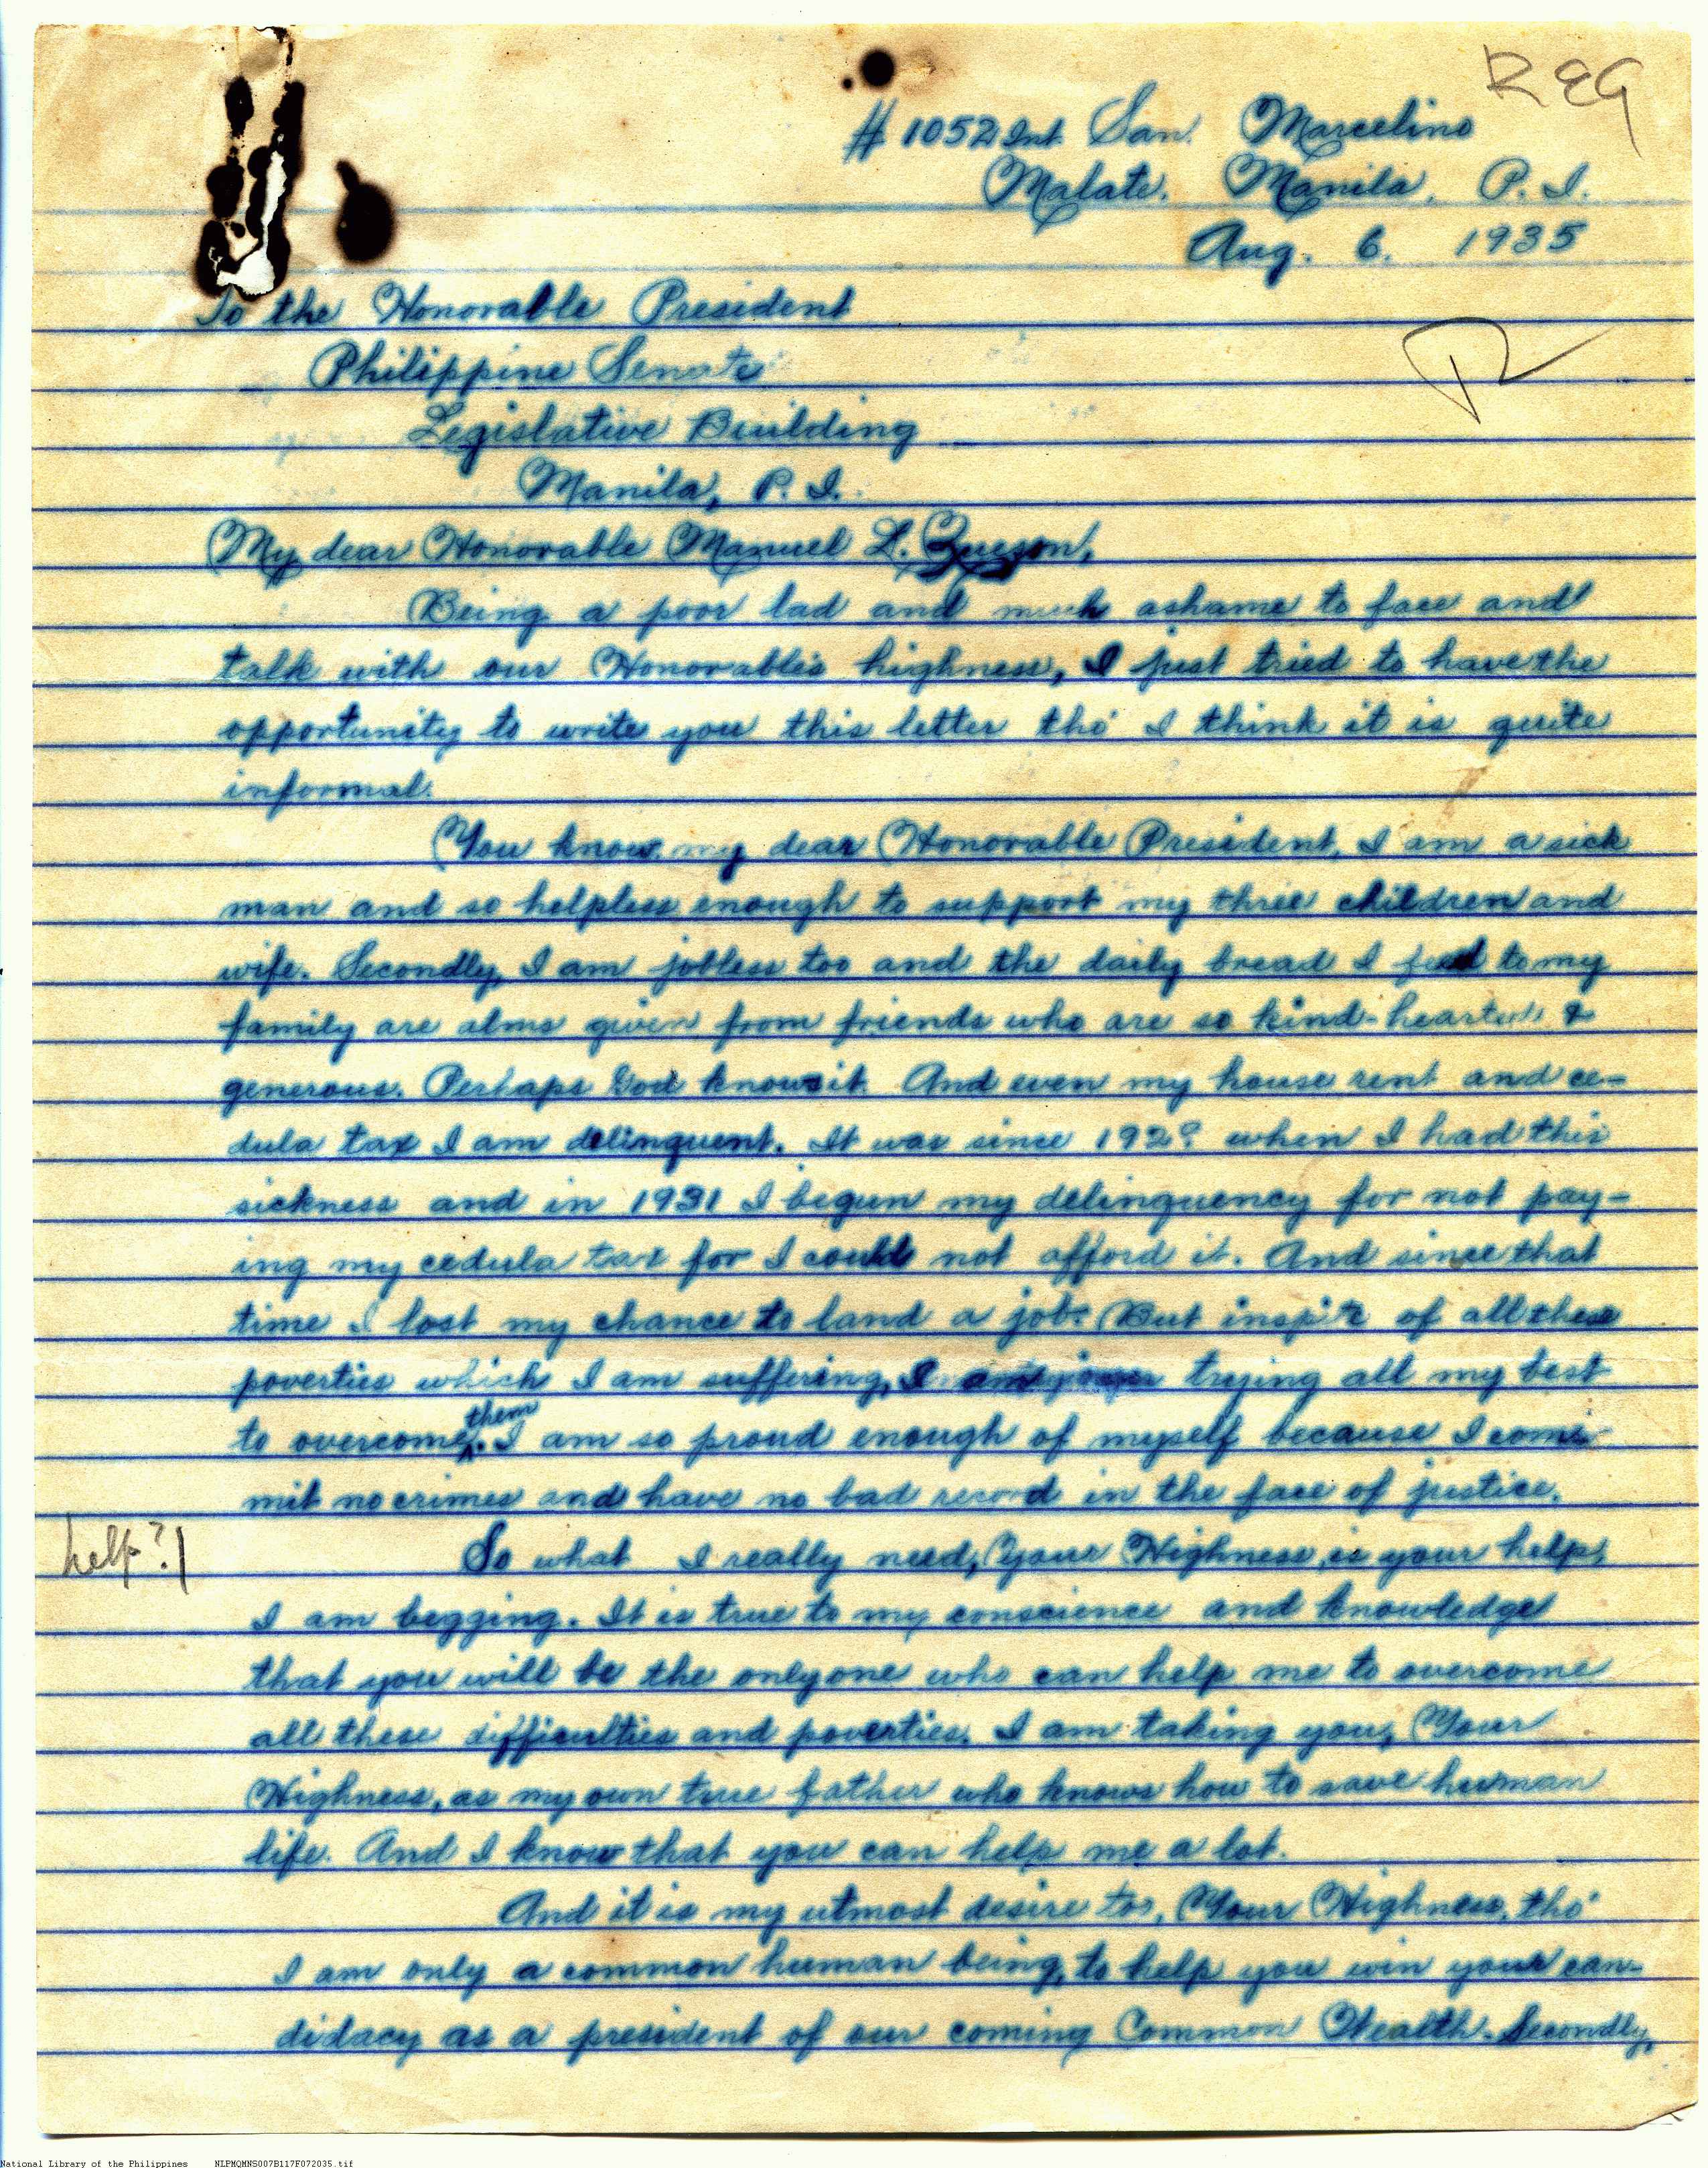 REG
# 1052 Int. San. Marcelino
Malate. Manila, P. I.
Aug. 6. 1935
To the Honorable President
Philippine Senate
Legislative Building
Manila, P. I.
My dear Honorable Manuel L. Quezon,
Being a poor lad and much ashame to face and
talk with our Honorable's highness, I just tried to have the
opportunity to write you this letter tho' I think it is quite
informal.
You know, my dear Honorable President, I am a sick
man and so helpless enough to support my three children and
wife. Secondly, I am jobless too and the daily bread I feed to my
family are alms given from friends who are so kind-hearted &
generous. Perhaps God knows it. And even my house rent and ce-
dula tax I am delinquent. It was since when I had this
sickness and in 1931 I begun my delinquency for not pay-
ing my cedula tax for I could not afford it. And since that
time I lost my chance to land a job. But inspite of all these
poverties which I am suffering, I am trying all my best
to overcome them. I am so proud enough of myself because I com-
mit no crimes and have no bad record in the face of justice.
help?!
So what I really need, Your Highness, is your help,
I am begging. It is true to my conscience and knowledge
that you will be the only one who can help me to overcome
all these difficulties and poverties. I am taking you, Your
Highness, as my own true father who knows how to save human
life. And I know that you can help me a lot.
And it is my utmost desire too, Your Highness, tho'
I am only a common human being, to help you win your can-
didacy as a president of our coming Common Wealth. Secondly,
National Library of the Philippines NLPMQMNS007B117F072035.tif